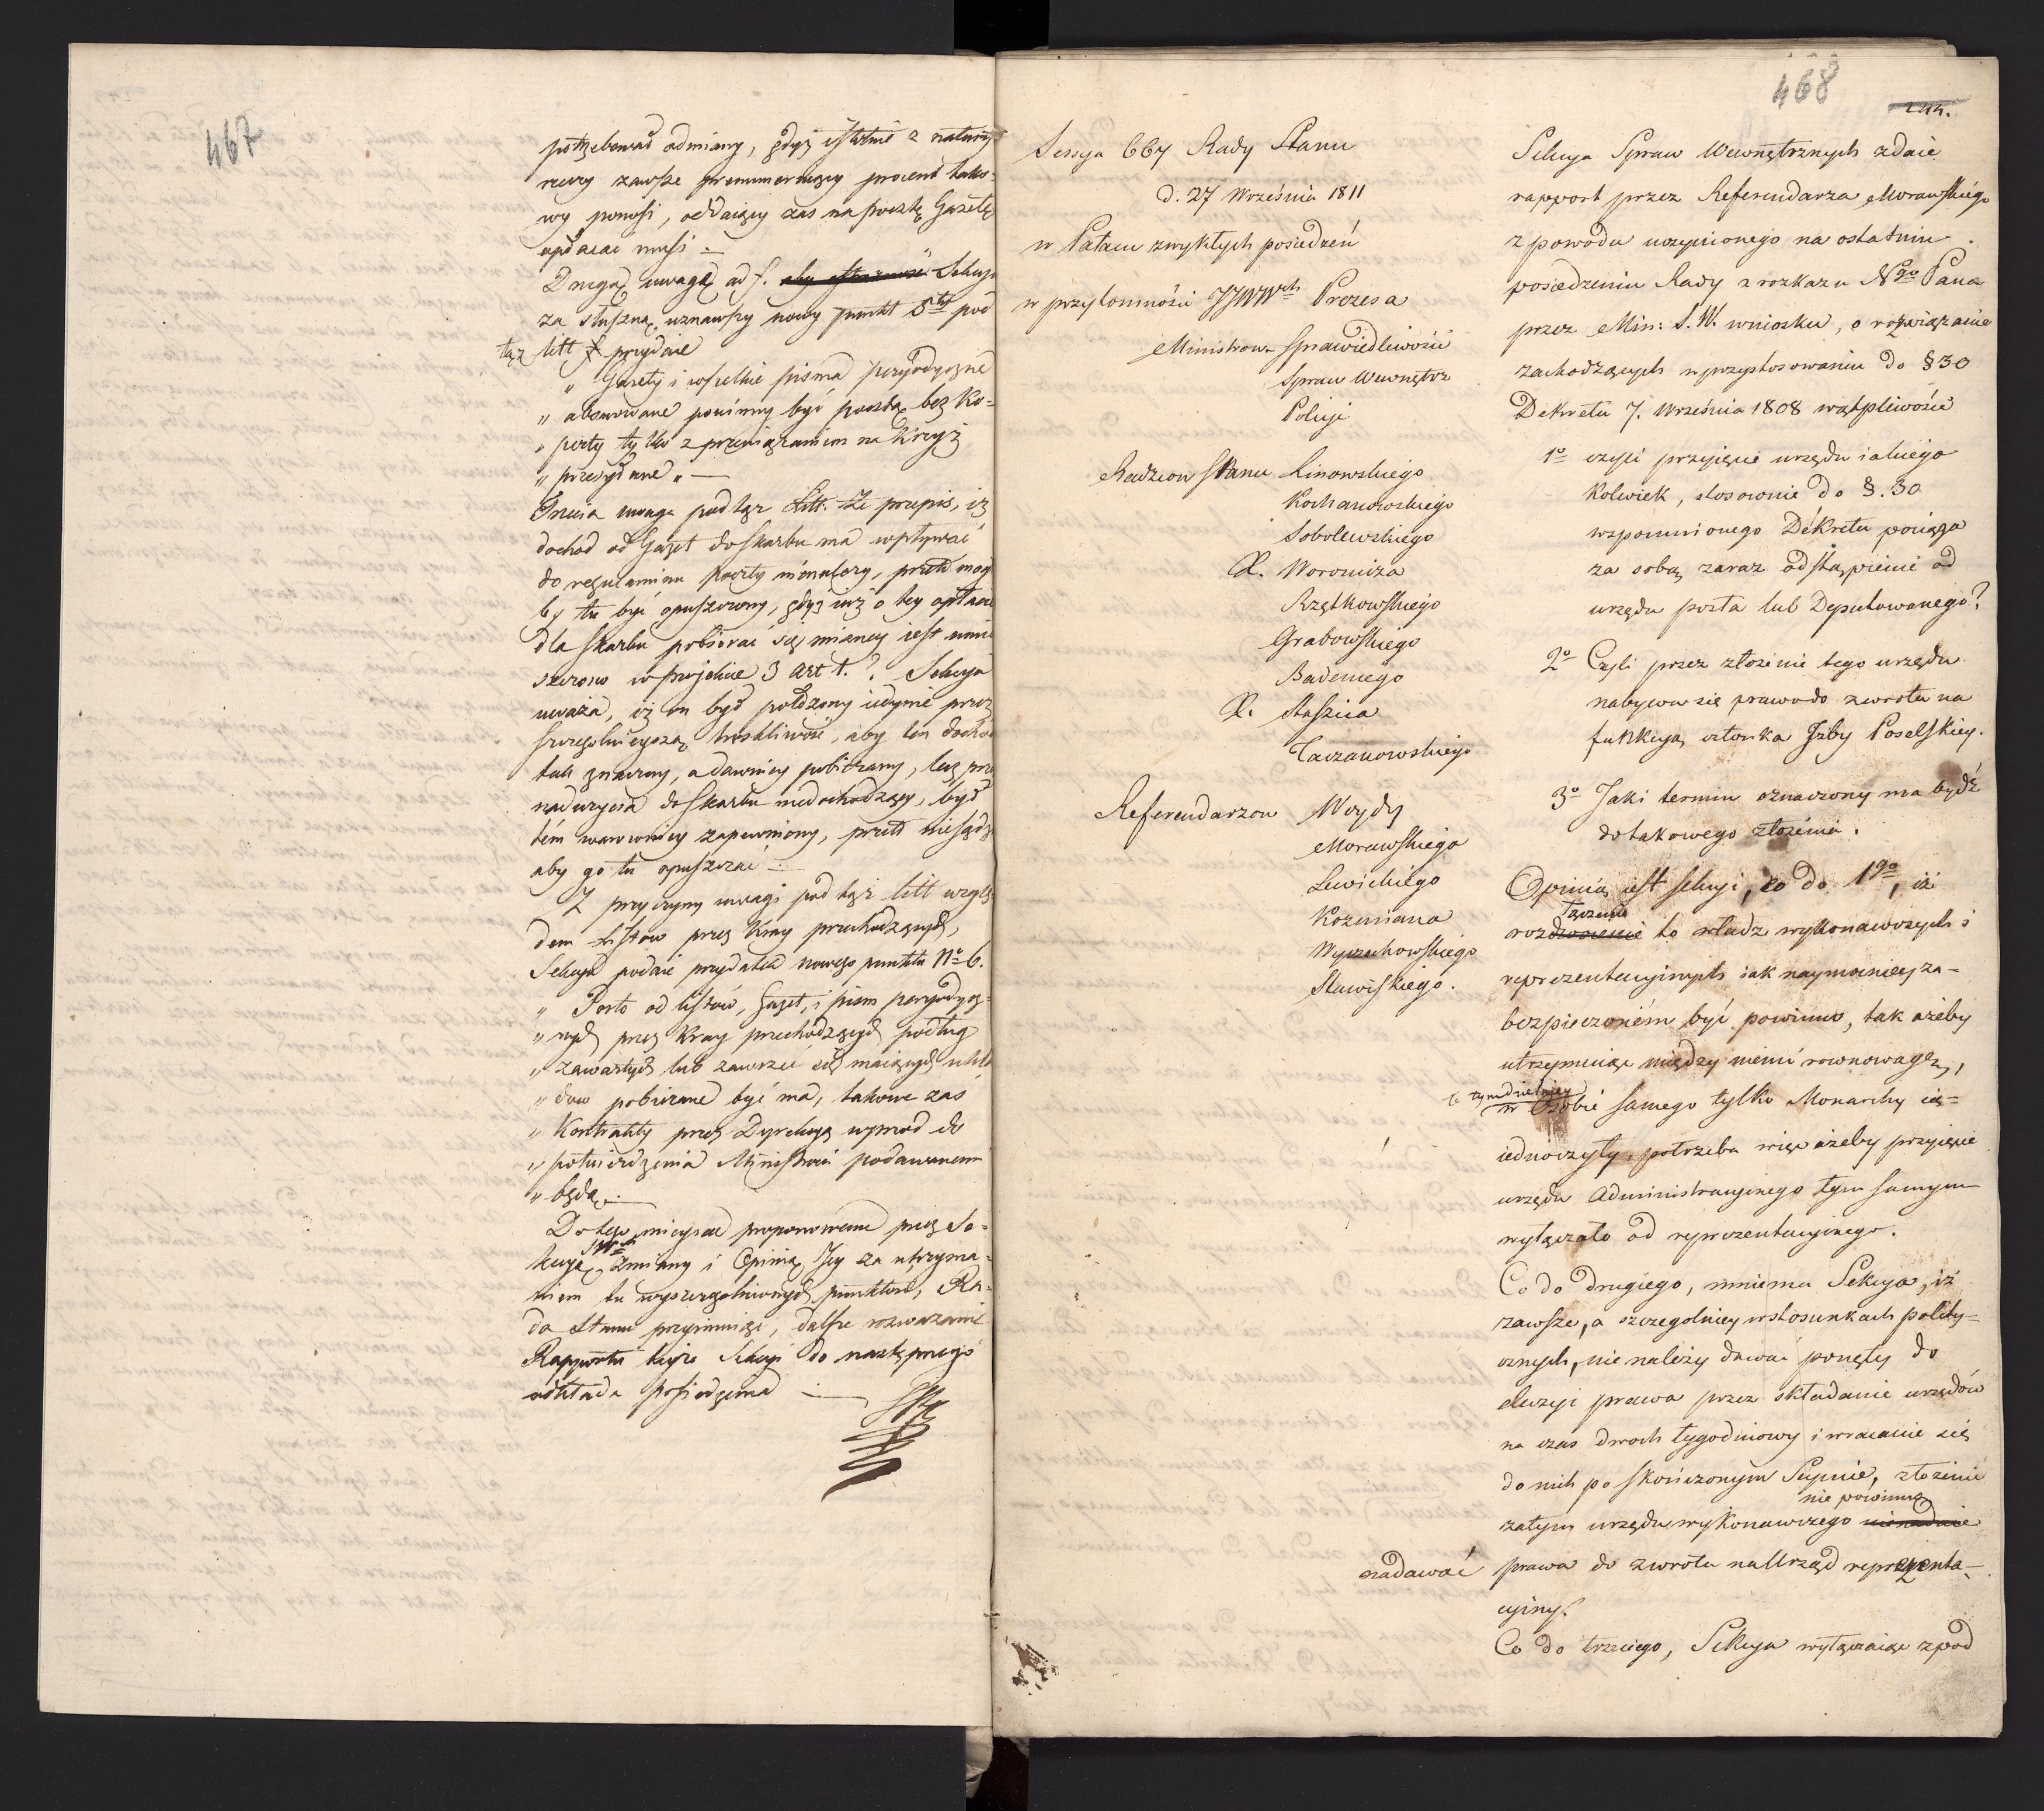 467
potrzebować odmiany, gdyż istotnie z natury
rzeczy zawsze prenumeruiący procent tako-
wy ponosi, oddaiący zaś na pocztę Gazetę
opłacać musi =
Drugą uwagę ad f. Sekcya
za słuszną uznawszy nowy punkt 5ty pod
tąż litt f przydaie
„ Gazety i wszelkie pisma peryodyczne
„ abonowane powinny być pocztą bez Ko=
„ perty tylko z przewiązaniem na Krzyż
„ przesyłane „ —
Trzecia uwaga pod tąż Litt. Że przepis, iż
dochod od Gazet do skarbu ma wpływać
do regulaminu poczty nienależy, przeto mógł
by tu być opuszczony, gdyż iuż o tey opłacie
dla skarbu pobierać się mianey iest umie
szczono w projekcie 3 art 1. ? Sekcya
uważa, iż on był położony iedynie przez
szczegolnieyszą troskliwość, aby ten dochod
tak znaczny, a dawniey pobierany, lecz prze
nadużycia do skarbu niedochodzący, był
tém warowniey zapewniony, przeto niesądzi
aby go tu opuszczać —
Z przyczyny uwagi pod tąż litt wzglę
dem Listow przez Kray przechodzących,
Sekcya podaie przydatek nowego punktu No 6.
„ Porto od listów, Gazet, i pism peryodycz=
„ nych przez Kray przechodzących podług
„ zawartych lub zawrzeć się maiących ukła
„ dow pobierane być ma, takowe zaś
„ Kontrakty przez Dyrekcyą wprzód do
„ potwierdzenia Ministrowi podawanemi
„ będą —
Do tego mieysca proponowane przez Se-
kcyą SWch zmiany i Opinią Jey za utrzyma-
niem tu wyszczegolnionych punktow, Ra-
da Stanu przyimuiąc, dalsze rozważanie
Rapportu teyże Sekcyi do następnego
odkłada posiedzenia —
468
244.
Sessya 667 Rady Stanu
d. 27 Września 1811
w Pałacu zwykłych posiedzeń
w przytomności JJWWch Prezesa
Ministrow Sprawiedliwości
Spraw Wewnętrz
Policyi
Radzcow Stanu Linowskiego
Kochanowskiego
Sobolewskiego
X. Woronicza
Rzętkowskiego
Grabowskiego
Badeniego
X. Staszica
Taczanowskiego
Referendarzow Woydy
Morawskiego
Lewickiego
Kozmiana
Wyczechowskiego
Stawiskiego.
Sekcya Spraw Wewnętrznych zdaie
rapport przez Referendarza Morawskiego
z powodu uczynionego na ostatniu
posiedzeniu Rady z rozkazu Ngo Pana
przez Min: S. W. wniosku, o rozwiązanie
zachodzących w przystosowaniu do § 30
Dekretu 7. Września 1808 wątpliwości
1o czyli przyięcie urzędu iakiego
Kolwiek, stosownie do §. 30
wspomnionego Dekretu pociąga
za sobą zaraz odstąpienie od
urzędu posła lub Deputowanego?
2o Czyli przez złożenie tego urzędu
nabywa się prawo do zwrotu na
funkcyą członka Izby Poselskiey.
3o Jaki termin oznaczony ma bydź
do takowego złożenia.
Opinią iest sekcyi, co do 1go, iż
łączenie
rozdwoienie to władz wykonawczych i
reprezentacyinych iak naymocniey za-
bezpieczoném być powinno, tak ażeby
utrzymuiąc między niemi rownowagę,
te tym dzielniey
w Osobie samego tylko Monarchy ie=
iednoczyły, potrzeba więc ażeby przyięcie
urzędu Administracyinego tym samym
wyłączało od reprezentacyinego.
Co do drugiego, mniema Sekcya, iż
zawsze, a szczegolniey w stosunkach polity=
cznych, nie należy dawać ponęty do
eluzyi prawa przez składanie urzędów
na czas dwoch tygodniowy i wracanie się
do nich po skończonym Seymie, złożenie
nie powinno
zatym urzędu wykonawczego nienadaie
nadawać prawa do zwrotu na Urząd reprezenta-
cyiny.
Co do trzeciego, Sekcya wyłączaiąc zpod